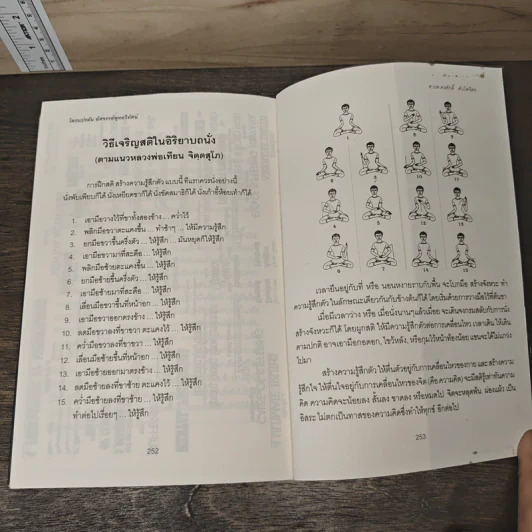 วิธีเจริญสติในอิริยาบถนั่ง
(ตามแนวหลวงพ่อเทียน จิตฺตสุโภ)
การฝึกสติ สร้างความรู้สึกตัว แบบนี้ ทีแรกควรนั่งอย่างนี้
นั่งพับเพียบก็ได้ นั่งเหยียดขาก็ได้ นั่งขัดสมาธิก็ได้ นั่งเก้าอี้ห้อยเท้าก็ได้
1. เอามือวางไว้ที่ขาทั้งสองข้าง... คว่ำไว้
2. พลิกมือขวาตะแคงขึ้น... ทำช้าๆ ... ให้มีความรู้สึก
3. ยกมือขวาขึ้นครึ่งตัว... ให้รู้สึก... มันหยุดก็ให้รู้สึก
4. เอามือขวามาที่สะดือ... ให้รู้สึก
5. พลิกมือซ้ายตะแคงขึ้น... ให้รู้สึก
6. ยกมือซ้ายขึ้นครึ่งตัว... ให้รู้สึก
7. เอามือซ้ายมาที่สะดือ... ให้รู้สึก
8. เลื่อนมือขวาขึ้นที่หน้าอก... ให้รู้สึก
9. เอามือขวาออกตรงข้าง... ให้รู้สึก
10. ลดมือขวาลงที่ขาขวา ตะแคงไว้ ... ให้รู้สึก
11. คว่ำมือขวาลงที่ขาขวา ... ให้รู้สึก
12. เลื่อนมือซ้ายขึ้นที่หน้าอก ... ให้รู้สึก
13. เอามือซ้ายออกมาตรงข้าง ... ให้รู้สึก
14. ลดมือซ้ายลงที่ขาซ้าย ตะแคงไว้ ... ให้รู้สึก
15. คว่ำมือซ้ายลงที่ขาซ้าย ... ให้รู้สึก
ทำต่อไปเรื่อยๆ ... ให้รู้สึก
252
เวลายืนอยู่กับที่ หรือ นอนหงายราบกับพื้น จะไบกมือ สร้างจังหวะ ทำ
ความรู้สึกตัว ในลักษณะเดียวกันกับข้างต้นก็ได้ โดยเริ่มด้วยการวางมือไว้ที่ต้นขา
เมื่อมีเวลาว่าง หรือ เมื่อนั่งนานๆแล้วเมื่อย จะเดินจงกรมสลับกับการนั่ง
สร้างจังหวะก็ได้ โดยผูกสติ ให้มีความรู้สึกตัวต่อการเคลื่อนไหว เวลาเดิน ให้เดิน
ตามปกติ อาจเอามือกอดอก, ไขว้หลัง, หรือกุมไว้หน้าท้องน้อย แขนจะได้ไม่แกว่ง
ไปมา
สร้างความรู้สึกตัว ให้ตื่นตัวอยู่กับการเคลื่อนไหวของกาย และ สร้างความ
รู้สึกใจ ให้ตื่นใจอยู่กับการเคลื่อนไหวของจิต (คือ ความคิด) จะมีสติรู้เท่าทันความ
คิด ความคิดจะน้อยลง สั้นลง ขาดลง หรือหมดไป จิตจะหลุดพ้น ผ่องแผ้ว เป็น
อิสระ ไม่ตกเป็นทาสของความคิดซึ่งทำให้ทุกข์ อีกต่อไป
253